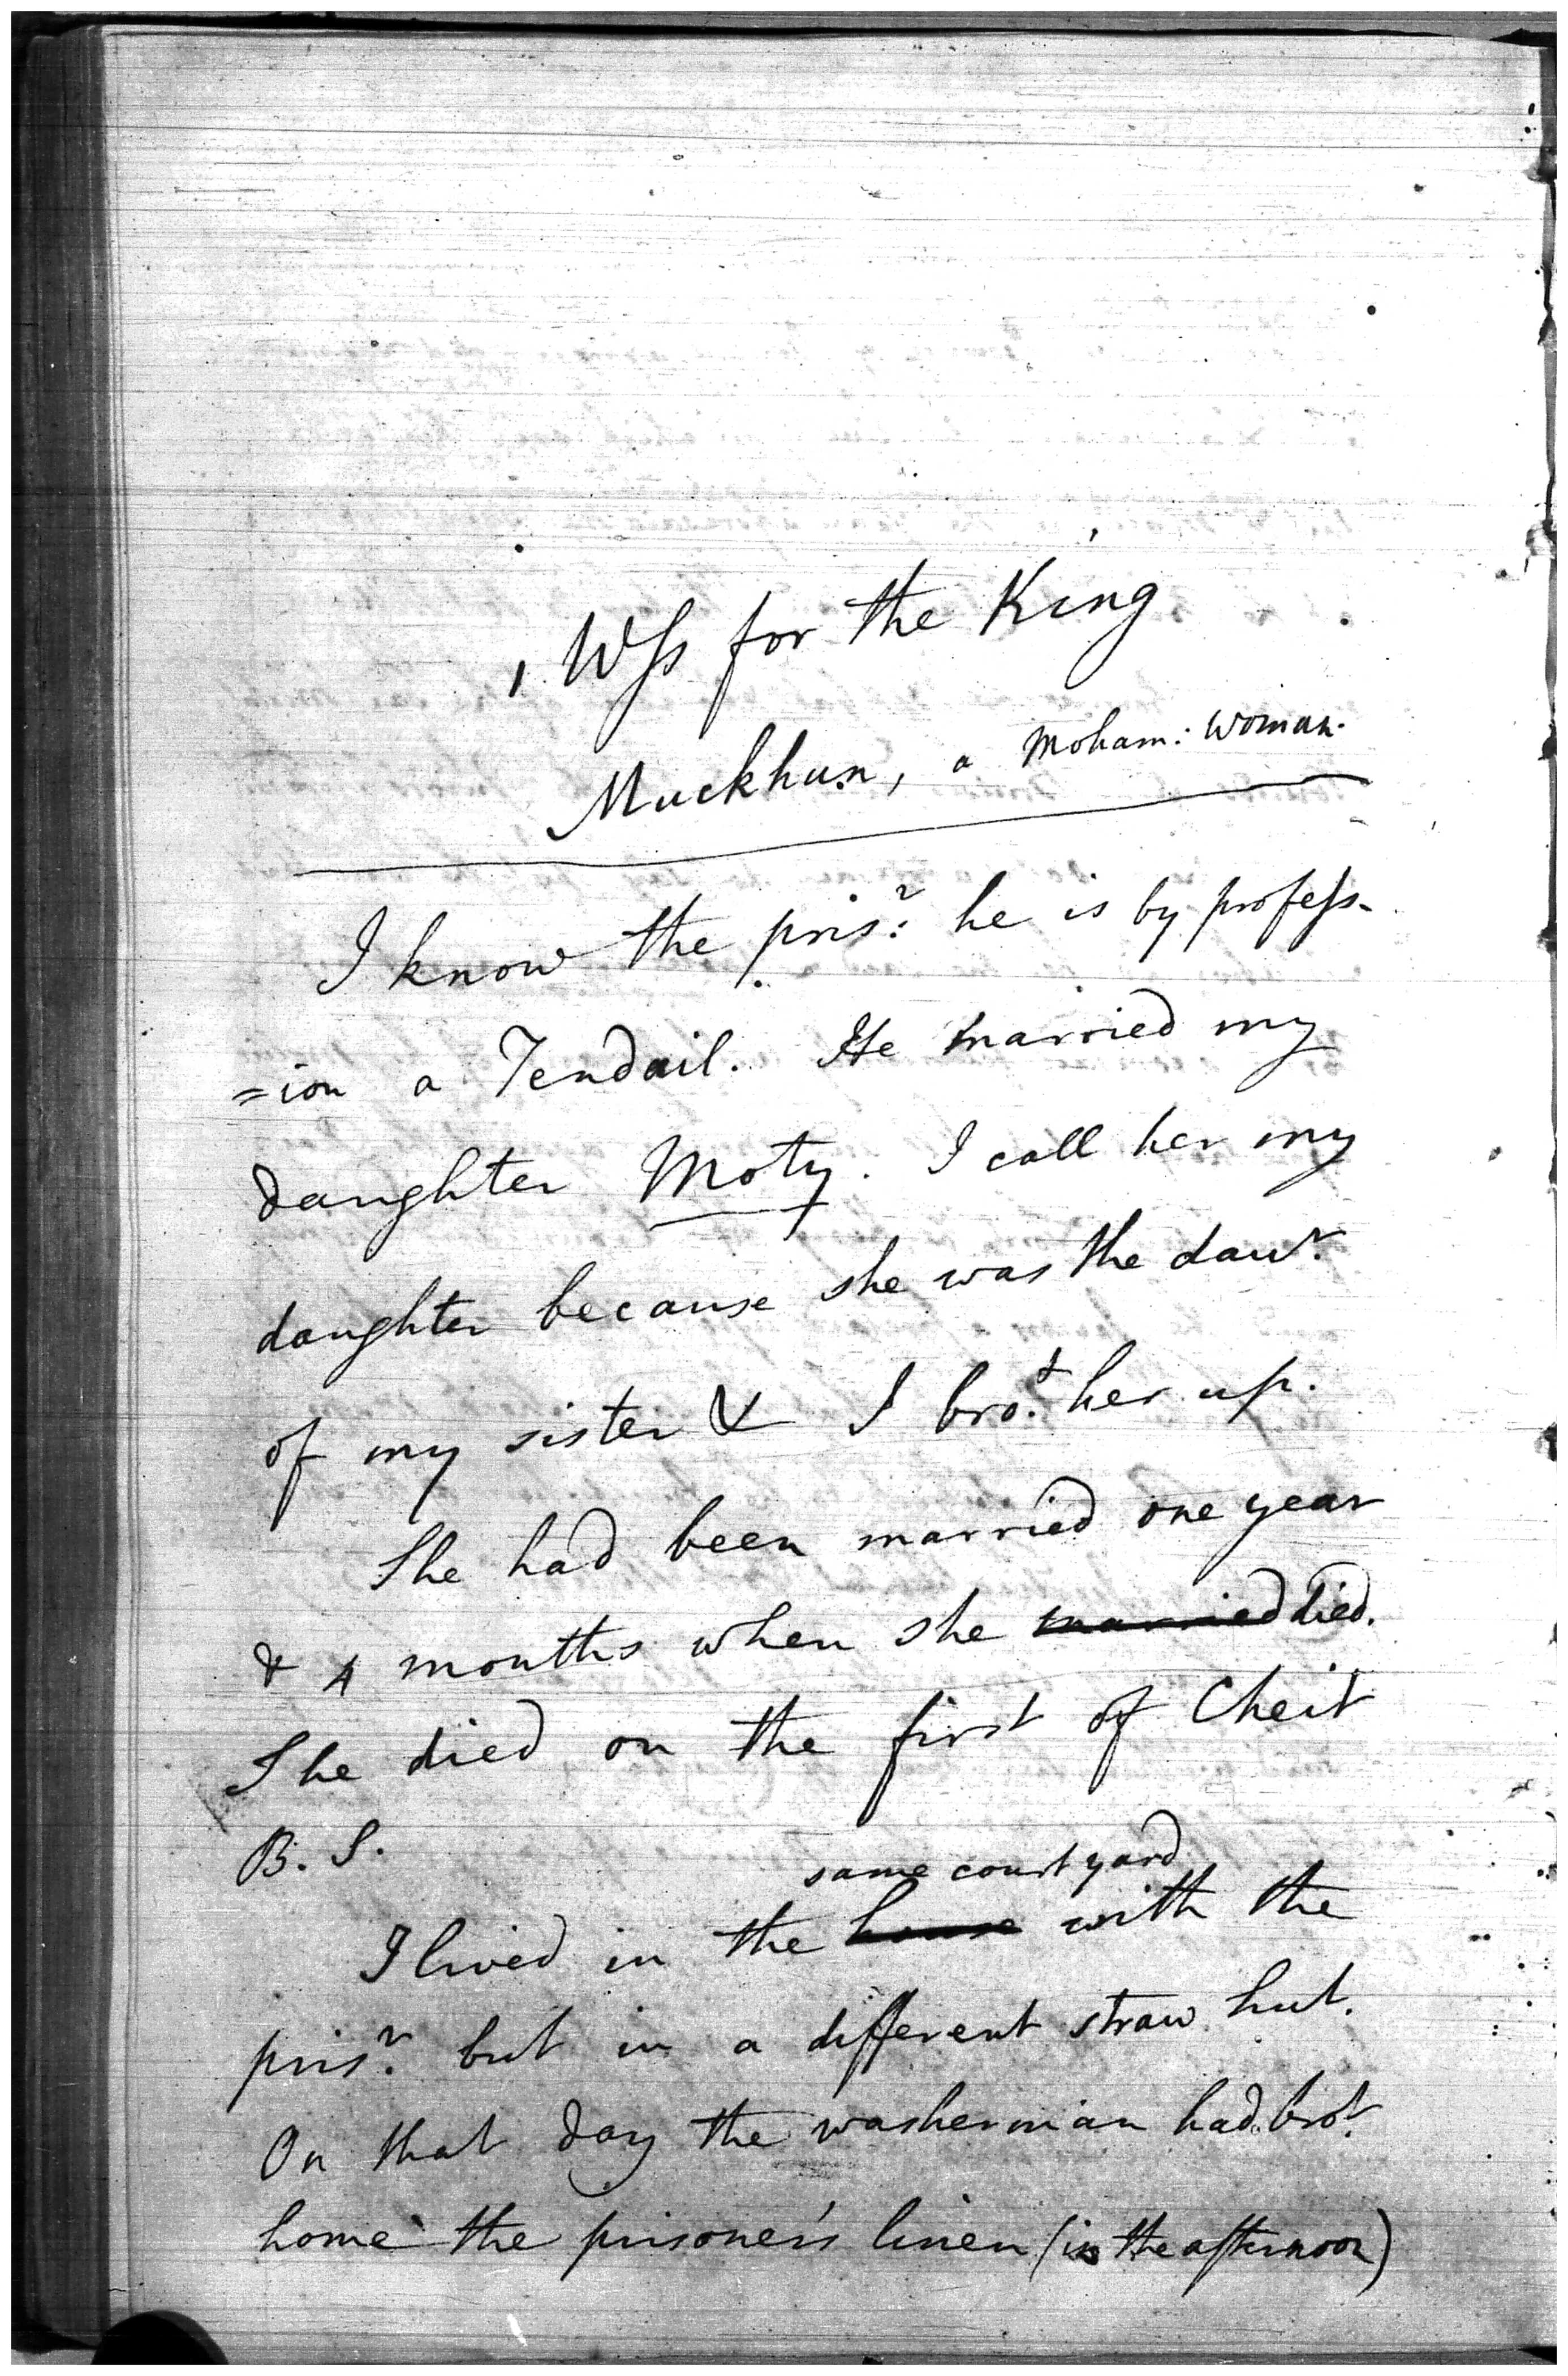 1 Wss for the King
Muckhun, a Moham: Woman.
I know the pris.r he is by profess-
=ion a Tendail. He married my
daughter Moty. I call her my
daughter because she was the daur.
of my sister & I bro.t her up.
She had been married one year
& 4 months when she married died.
She died on the first of Cheit
B. S.
same court yard
I lived in the house with the
pris.r but in a different straw hut.
On that day the washerman had brot.
home the prisoner's linen (in the afternoon)